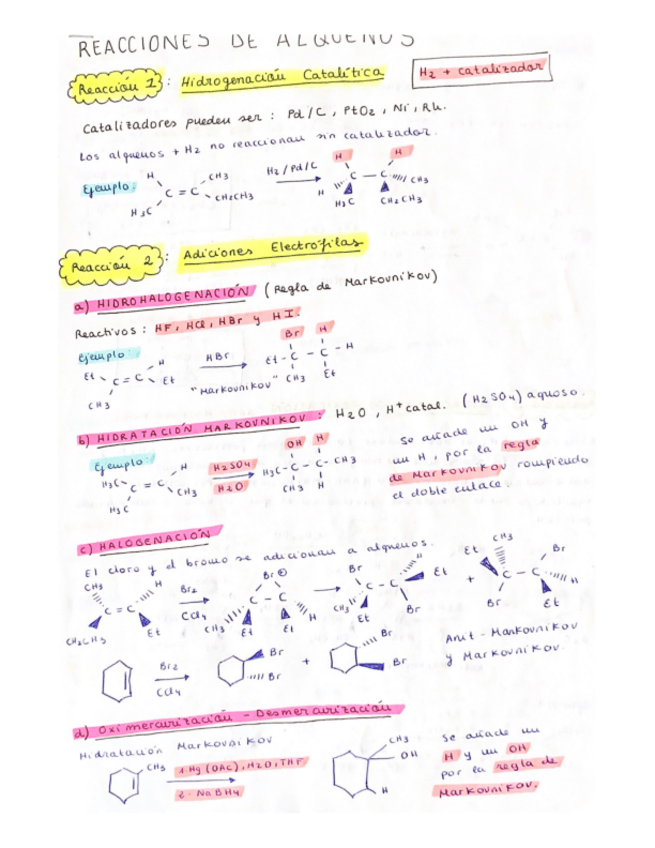 REACCIONES DE ALQUENOS
Reacción 1: Hidrogenación Catalítica
H2 + catalizador
Catalizadores pueden ser: Pd/C, PtO2, Ni, Rh.
Los alquenos + H2 no reaccionan sin catalizador.
Ejemplo:
H CH3
C = C
H3C CH2CH3
H2/Pd/C
H H
H C – C CH3
H3C CH2CH3
Reacción 2: Adiciones Electrófilas
a) HIDROHALOGENACIÓN (Regla de Markovnikov)
Reactivos: HF, HCl, HBr y HI.
Ejemplo:
Et H
C = C
CH3 Et
HBr
"Markovnikov"
Br H
Et – C – C – H
CH3 Et
b) HIDRATACIÓN MARKOVNIKOV: H2O, H+ catal. (H2SO4) aquoso.
Ejemplo:
H3C H
C = C
H3C CH3
H2SO4
H2O
OH H
H3C – C – C – CH3
CH3 H
Se añade un OH y
un H, por la regla
de Markovnikov rompiendo
el doble enlace.
c) HALOGENACIÓN
El cloro y el bromo se adicionan a alquenos.
CH3 H
C = C
CH2CH3 Et
Br2
CCl4
Br⊕
C – C
CH3 Et Et H
Br H
C – C Et
CH3 Et Br
+
CH3
Et Br
C – C H
Br Et
Br2
CCl4
Br
Br
+
Br
Br
Anit-Mankovnikov
y Markovnikov.
d) Oximercurización – Desmercurización
Hidratación Markovnikov
CH3
1 Hg(OAc), H2O, THF
2. NaBH4
CH3
OH
H
Se añade un
H y un OH
por la regla de
Markovnikov.